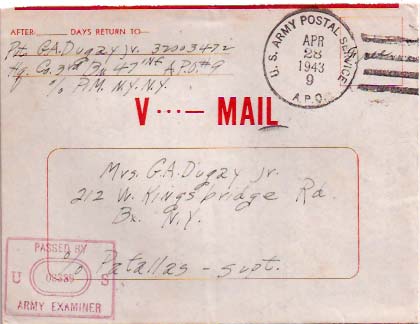 AFTER DAYS RETURN TO
Pvt G.A. Dugay Jr. 32003472
Hq. Co. 3rd Bn 47 INF A.P.O. #9
% P.M. N.Y. N.Y.
U.S. ARMY POSTAL SERVICE
APR
28
1943
9
A.P.O.
V ···— MAIL
Mrs. G.A. Dugay Jr.
212 W. Kingsbridge Rd.
Bx. N.Y.
% Patallas - supt.
PASSED BY
U 08339 S
ARMY EXAMINER